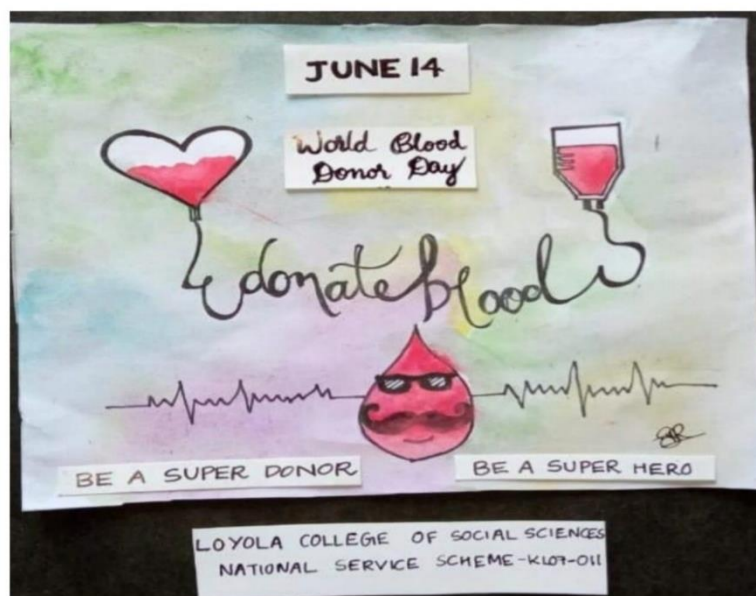 JUNE 14
World Blood
Donor Day
donate blood
BE A SUPER DONOR
BE A SUPER HERO
LOYOLA COLLEGE OF SOCIAL SCIENCES
NATIONAL SERVICE SCHEME-KL07-011